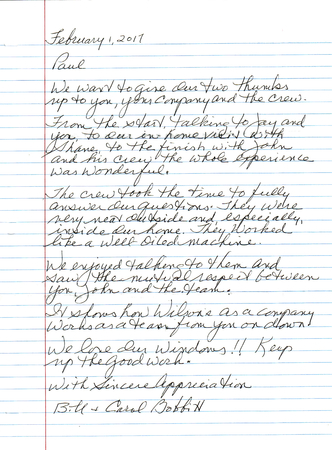 February 1, 2017
Paul
We want to give our two thumbs
up to you, your company and the crew.
From the start, talking to Jay and
you, to our in home visit with
Shane, to the finish with John
and his crew the whole experience
was wonderful.
The crew took the time to fully
answer our questions. They were
very neat outside and, especially,
inside our home. They worked
like a well oiled machine.
We enjoyed talking to them and
saw the mutual respect between
you, John and the team.
It shows how Wilsons as a company
works as a team from you on down!
We love our windows!! Keep
up the good work.
With Sincere Appreciation
Bill + Carol Bobbitt